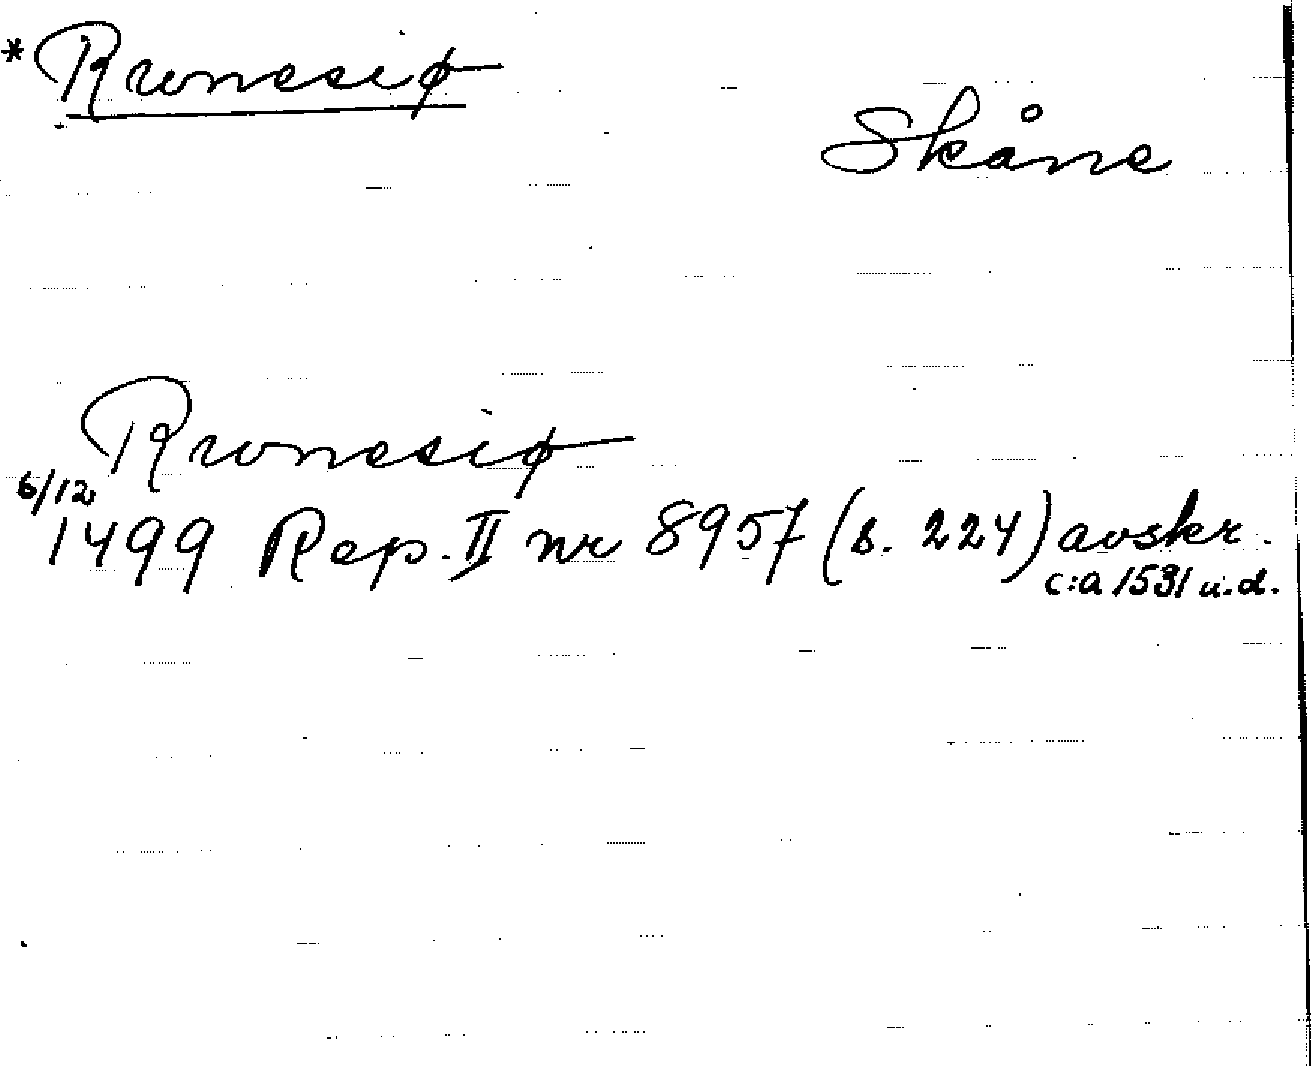 * Rwnesiø
Skåne
Rwnesiø
6/12
1499 Rep. II nr 8957 (s. 224) avskr.
c:a 1531 u.d.